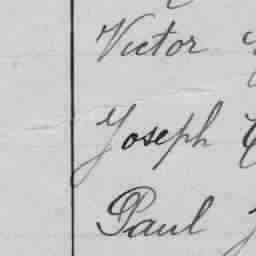 Victor
Joseph
Paul